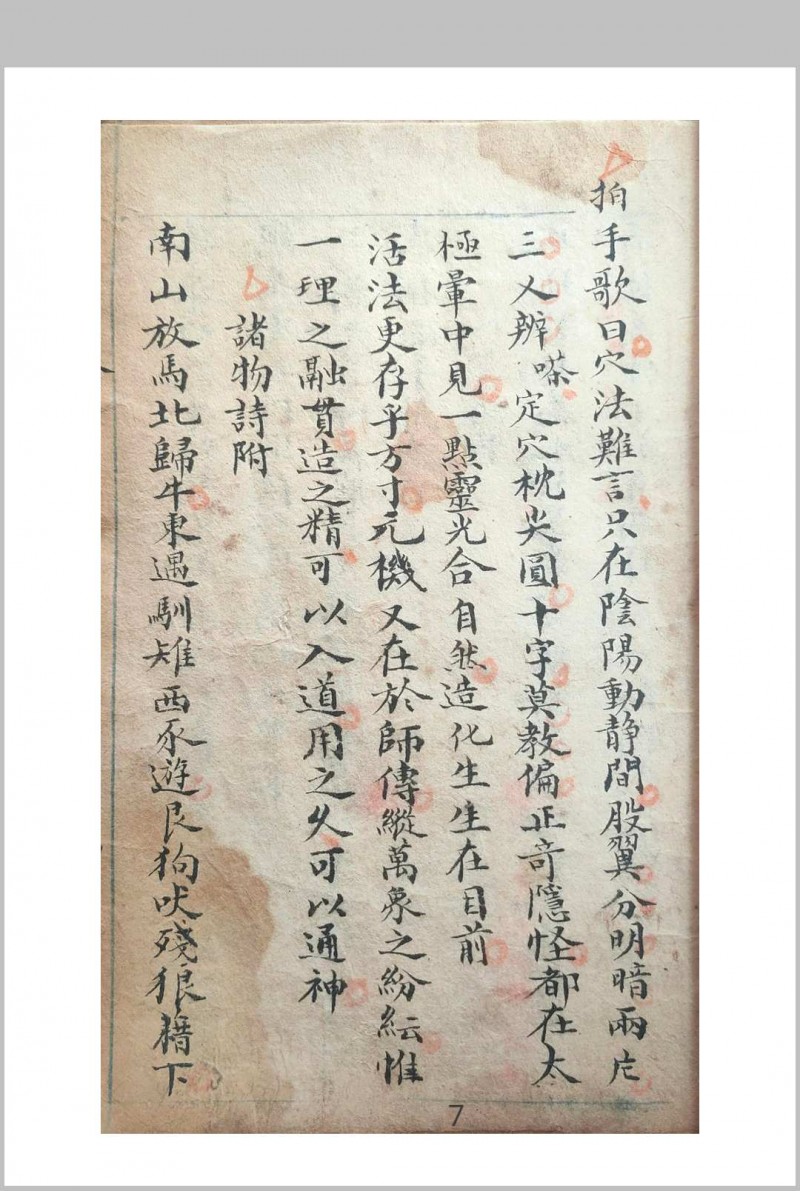 拍手歌曰穴法難言只在陰陽動静間股翼分明暗兩片
三乂辨 定穴枕尖圓十字莫教偏正竒隱怪都在太
極暈中見一點靈光合自然造化生生在目前
活法更存乎方寸元機又在於師傳縱萬象之紛紜惟
一理之融貫造之精可以入道用之久可以通神
諸物詩附
南山放馬北歸牛東遇馴雉西豕遊艮狗吠殘狼藉下
7